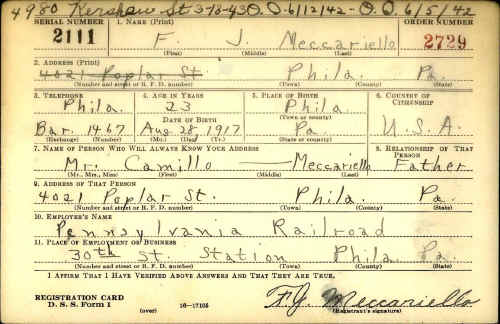 4980 Kershaw St 3-18-43 O.O. 6/12/42 - O.O. 6/5/42
SERIAL NUMBER 1. NAME (Print) ORDER NUMBER
2111 F. J. Meccariello 2729
(First) (Middle) (Last)
2. ADDRESS (Print)
4021 Poplar St. Phila. Pa.
(Number and street or R. F. D. number) (Town) (County) (State)
3. TELEPHONE 4. AGE IN YEARS 5. PLACE OF BIRTH 6. COUNTRY OF CITIZENSHIP
Phila. 23 Phila
DATE OF BIRTH (Town or county)
Bar. 1467 Aug 28, 1917 Pa. U.S.A.
(Exchange) (Number) (Mo.) (Day) (Yr.) (State or country)
7. NAME OF PERSON WHO WILL ALWAYS KNOW YOUR ADDRESS 8. RELATIONSHIP OF THAT PERSON
Mr. Camillo — Meccariello Father
(Mr., Mrs., Miss) (First) (Middle) (Last)
9. ADDRESS OF THAT PERSON
4021 Poplar St. Phila. Pa.
(Number and street or R. F. D. number) (Town) (County) (State)
10. EMPLOYER'S NAME
Pennsylvania Railroad
11. PLACE OF EMPLOYMENT OR BUSINESS
30th St. Station Phila. Pa.
(Number and street or R. F. D. number) (Town) (County) (State)
I AFFIRM THAT I HAVE VERIFIED ABOVE ANSWERS AND THAT THEY ARE TRUE.
REGISTRATION CARD
D. S. S. Form 1 (over) 16-17105 F. J. Meccariello
(Registrant's signature)